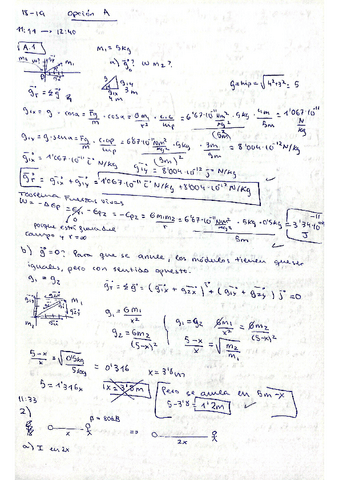 18-19 Opción A
11:11 → 12:40
A.1 m₁ = 5kg
a) g⃗? W m₂?
g₁ = hip = √4²+3² = 5
g⃗r = Σ g⃗
g₁ₓ = g · cosα = Fg/m · cosα = Gm₁/r² · c.c/hip = 6'67·10⁻¹¹ Nm²/kg² · 5kg/(5m)² · 4m/5m = 1'067·10⁻¹¹ N/kg
g₁y = g · senα = Fg/m · c.op/hip = 6'67·10⁻¹¹ Nm²/kg² · 5kg/(5m)² · 3m/5m = 8'004·10⁻¹² N/kg
g⃗₁ₓ = 1'067·10⁻¹¹ i⃗ N/kg g⃗₁y = 8'004·10⁻¹² j⃗ N/kg
g⃗r = g⃗₁ₓ + g⃗₁y = 1'067·10⁻¹¹ i⃗ N/kg + 8'004·10⁻¹² N/kg
Teorema Fuerzas vivas
W = -ΔEp = Ep₁ - Ep₂ = -Ep₂ = Gm₁m₂/r = 6'67·10⁻¹¹ Nm²/kg² · 5kg · 0'5kg / 5m = 3'74·10⁻¹¹ J
0
porque está fuera del
campo y r=∞
b) g⃗=0? Para que se anule, los módulos tienen que ser
iguales, pero con sentido opuesto.
g₁ = g₂ g⃗r = Σ g⃗ = (g⃗₁ₓ + g⃗₂ₓ) i⃗ + (g⃗₁y + g⃗₂y) j⃗ = 0
g₁ = Gm₁/x²
g₂ = Gm₂/(5-x)²
g₁ = g₂ Gm₁/x² = Gm₂/(5-x)²
5-x/x = √m₂/m₁
5-x/x = √0'5kg/5kg = 0'316 x = 3'8m
5 = 1'316x x = 3'8m
Pero se anula en 5m-x
5-3'8 = 1'2m
11:33
2) β = 80dB
x ⇒ 2x
a) I en 2x